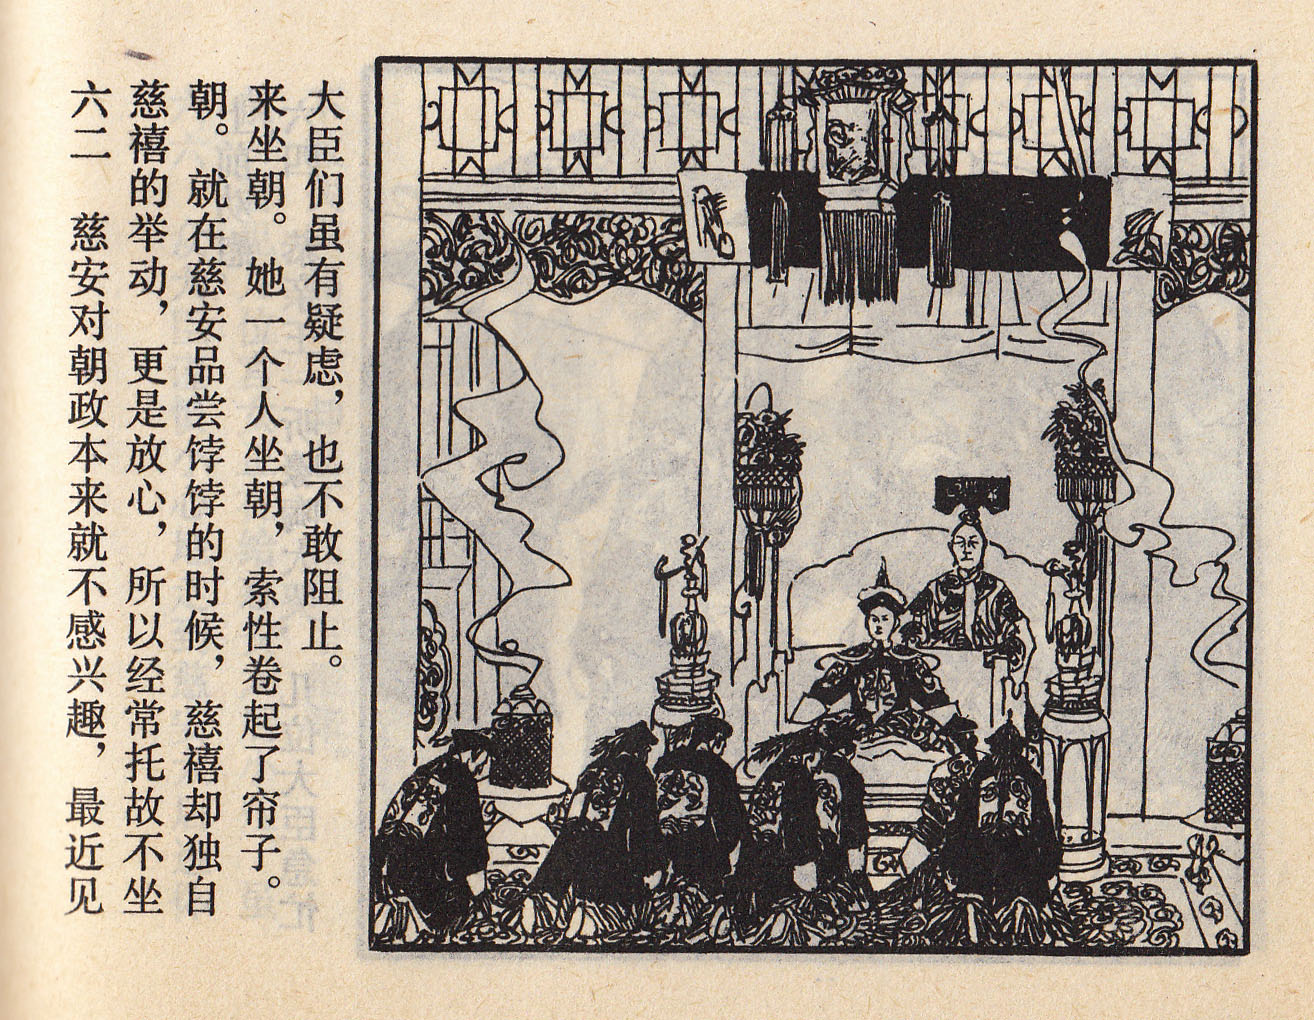 六二 慈安对朝政本来就不感兴趣，最近见
慈禧的举动，更是放心，所以经常托故不坐
朝。就在慈安品尝饽饽的时候，慈禧却独自
来坐朝。她一个人坐朝，索性卷起了帘子。
大臣们虽有疑虑，也不敢阻止。